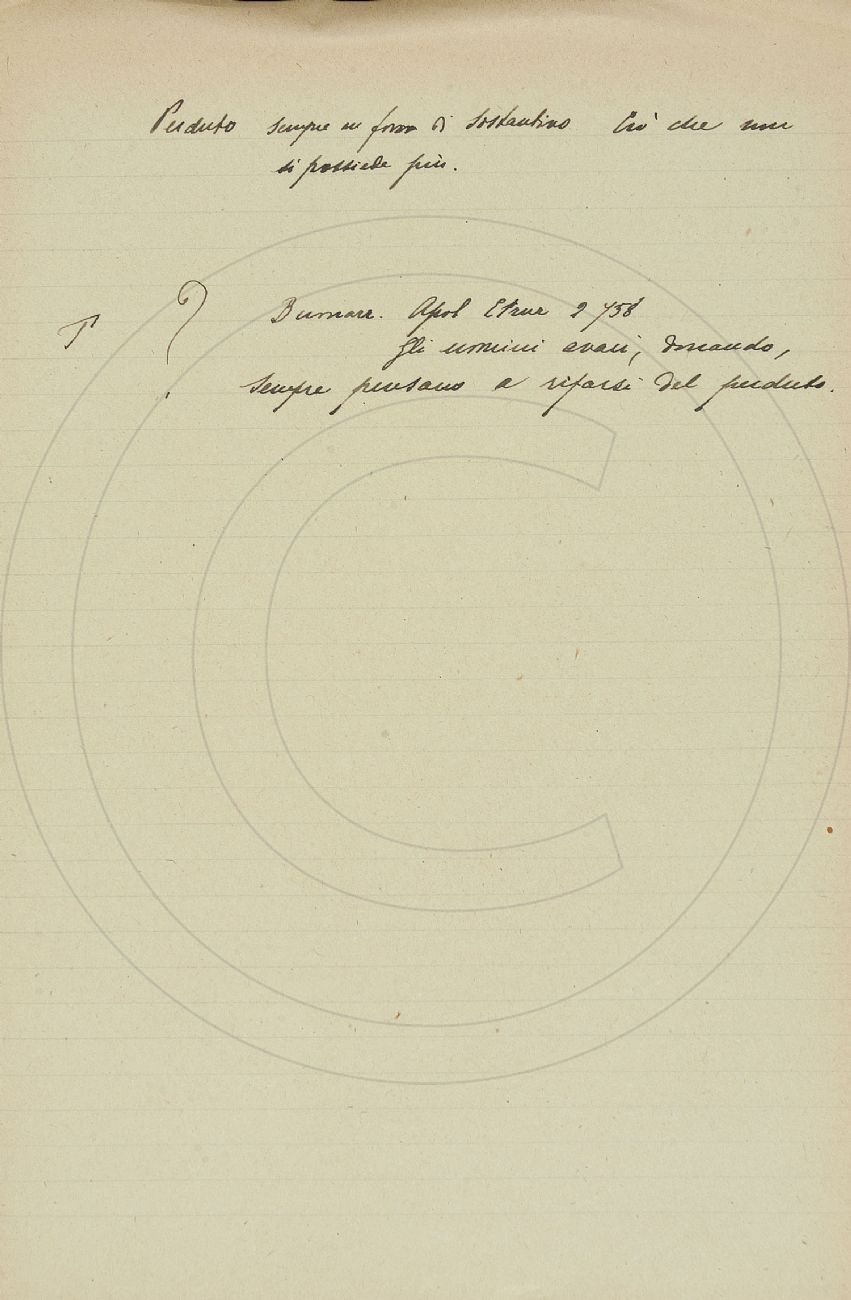 Perduto sempre in forza di Sostantivo Ciò che non
si possiede più.
? Buonarr. Apol Etrur 2 758
gli uomini avari, donando,
sempre pensano a rifarsi del perduto.